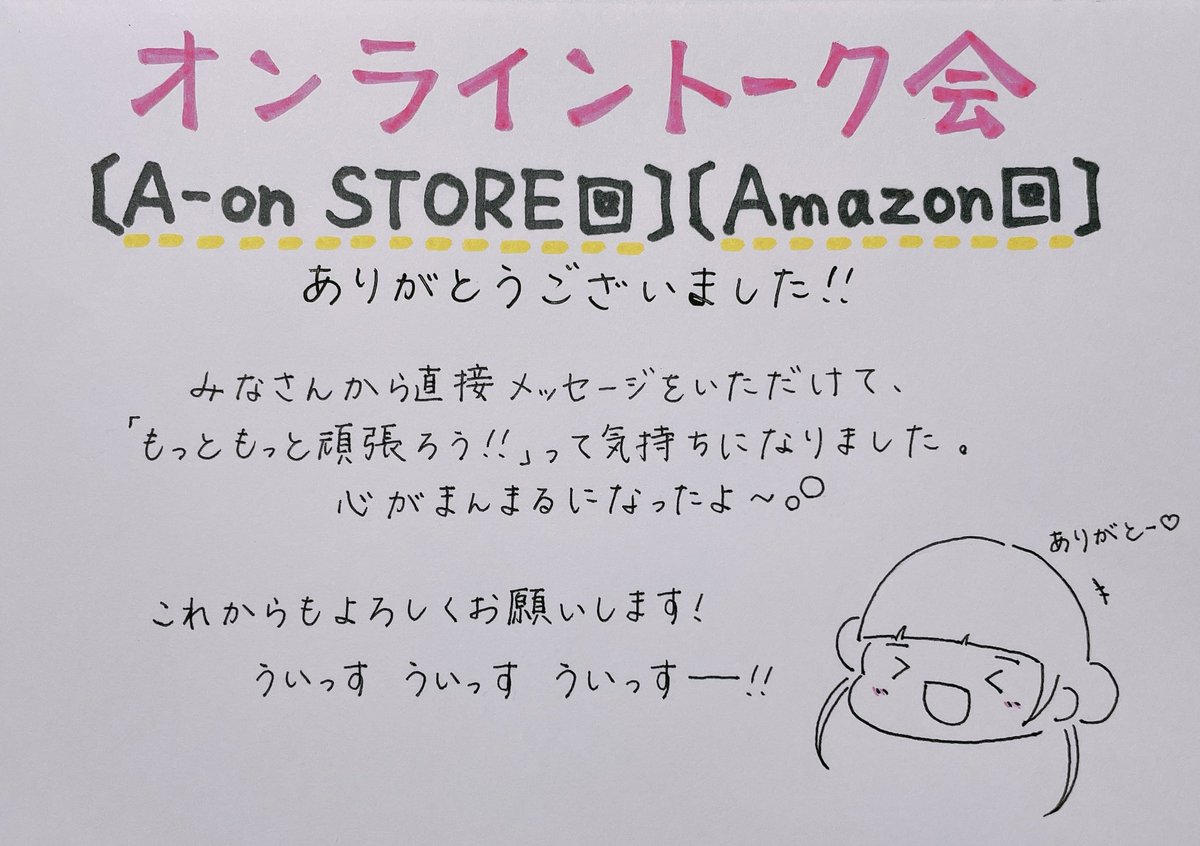 オンライントーク会
【A-on STORE回】【Amazon回】
ありがとうございました!!
みなさんから直接メッセージをいただけて、
「もっともっと頑張ろう!!」って気持ちになりました。
心がまんまるになったよ〜。○
ありがとー♡
これからもよろしくお願いします!
ういっす ういっす ういっすー!!